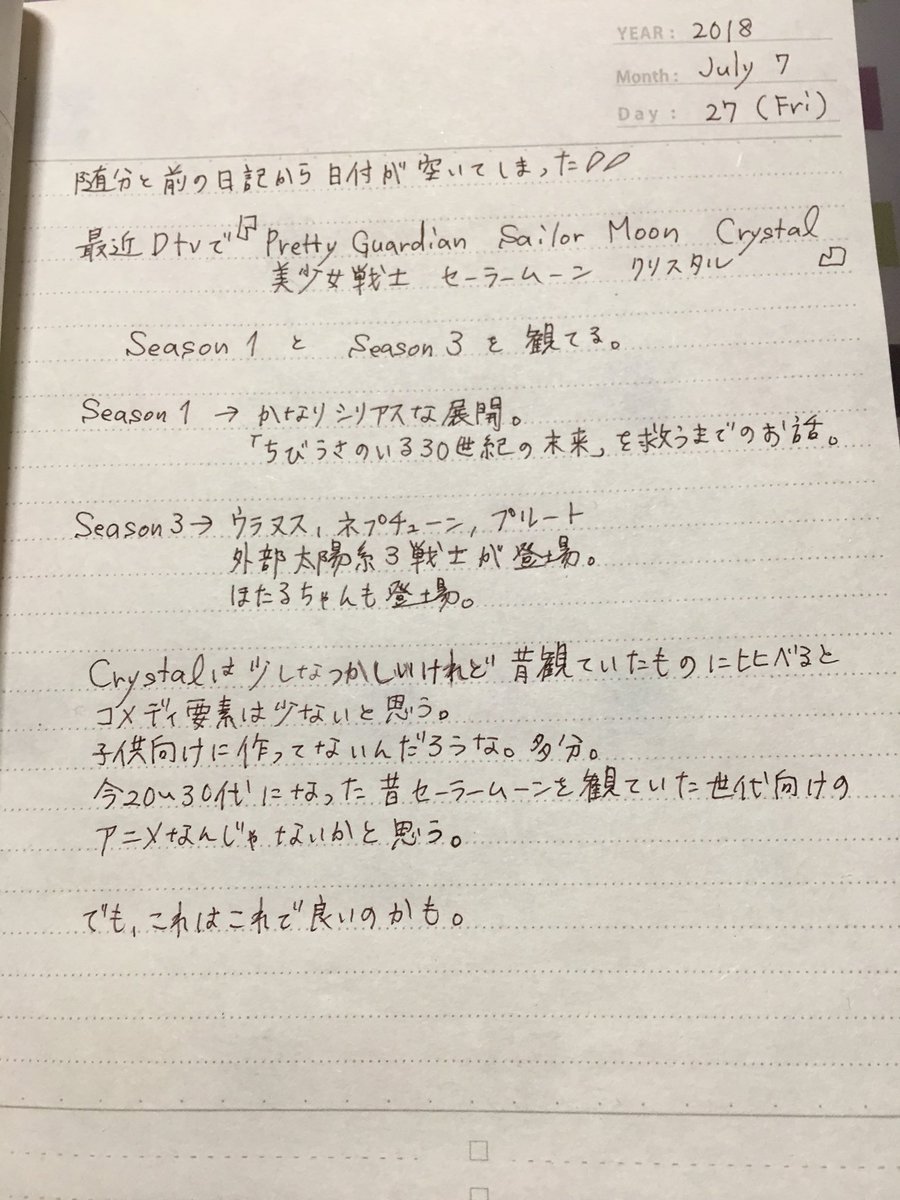 YEAR: 2018
Month: July 7
Day: 27 (Fri)
随分と前の日記から日付が空いてしまった
最近Dtvで『Pretty Guardian Sailor Moon Crystal
美少女戦士 セーラームーン クリスタル』
Season 1 と Season 3 を 観てる。
Season 1 → かなりシリアスな展開。
「ちびうさのいる30世紀の未来」を救うまでのお話。
Season 3 → ウラヌス, ネプチューン, プルート
外部太陽系3戦士が登場。
ほたるちゃんも登場。
Crystalは少しなつかしいけれど昔観ていたものに比べると
コメディ要素は少ないと思う。
子供向けに作ってないんだろうな。多分。
今20〜30代になった昔セーラームーンを観ていた世代向けの
アニメなんじゃないかと思う。
でも, これはこれで良いのかも。